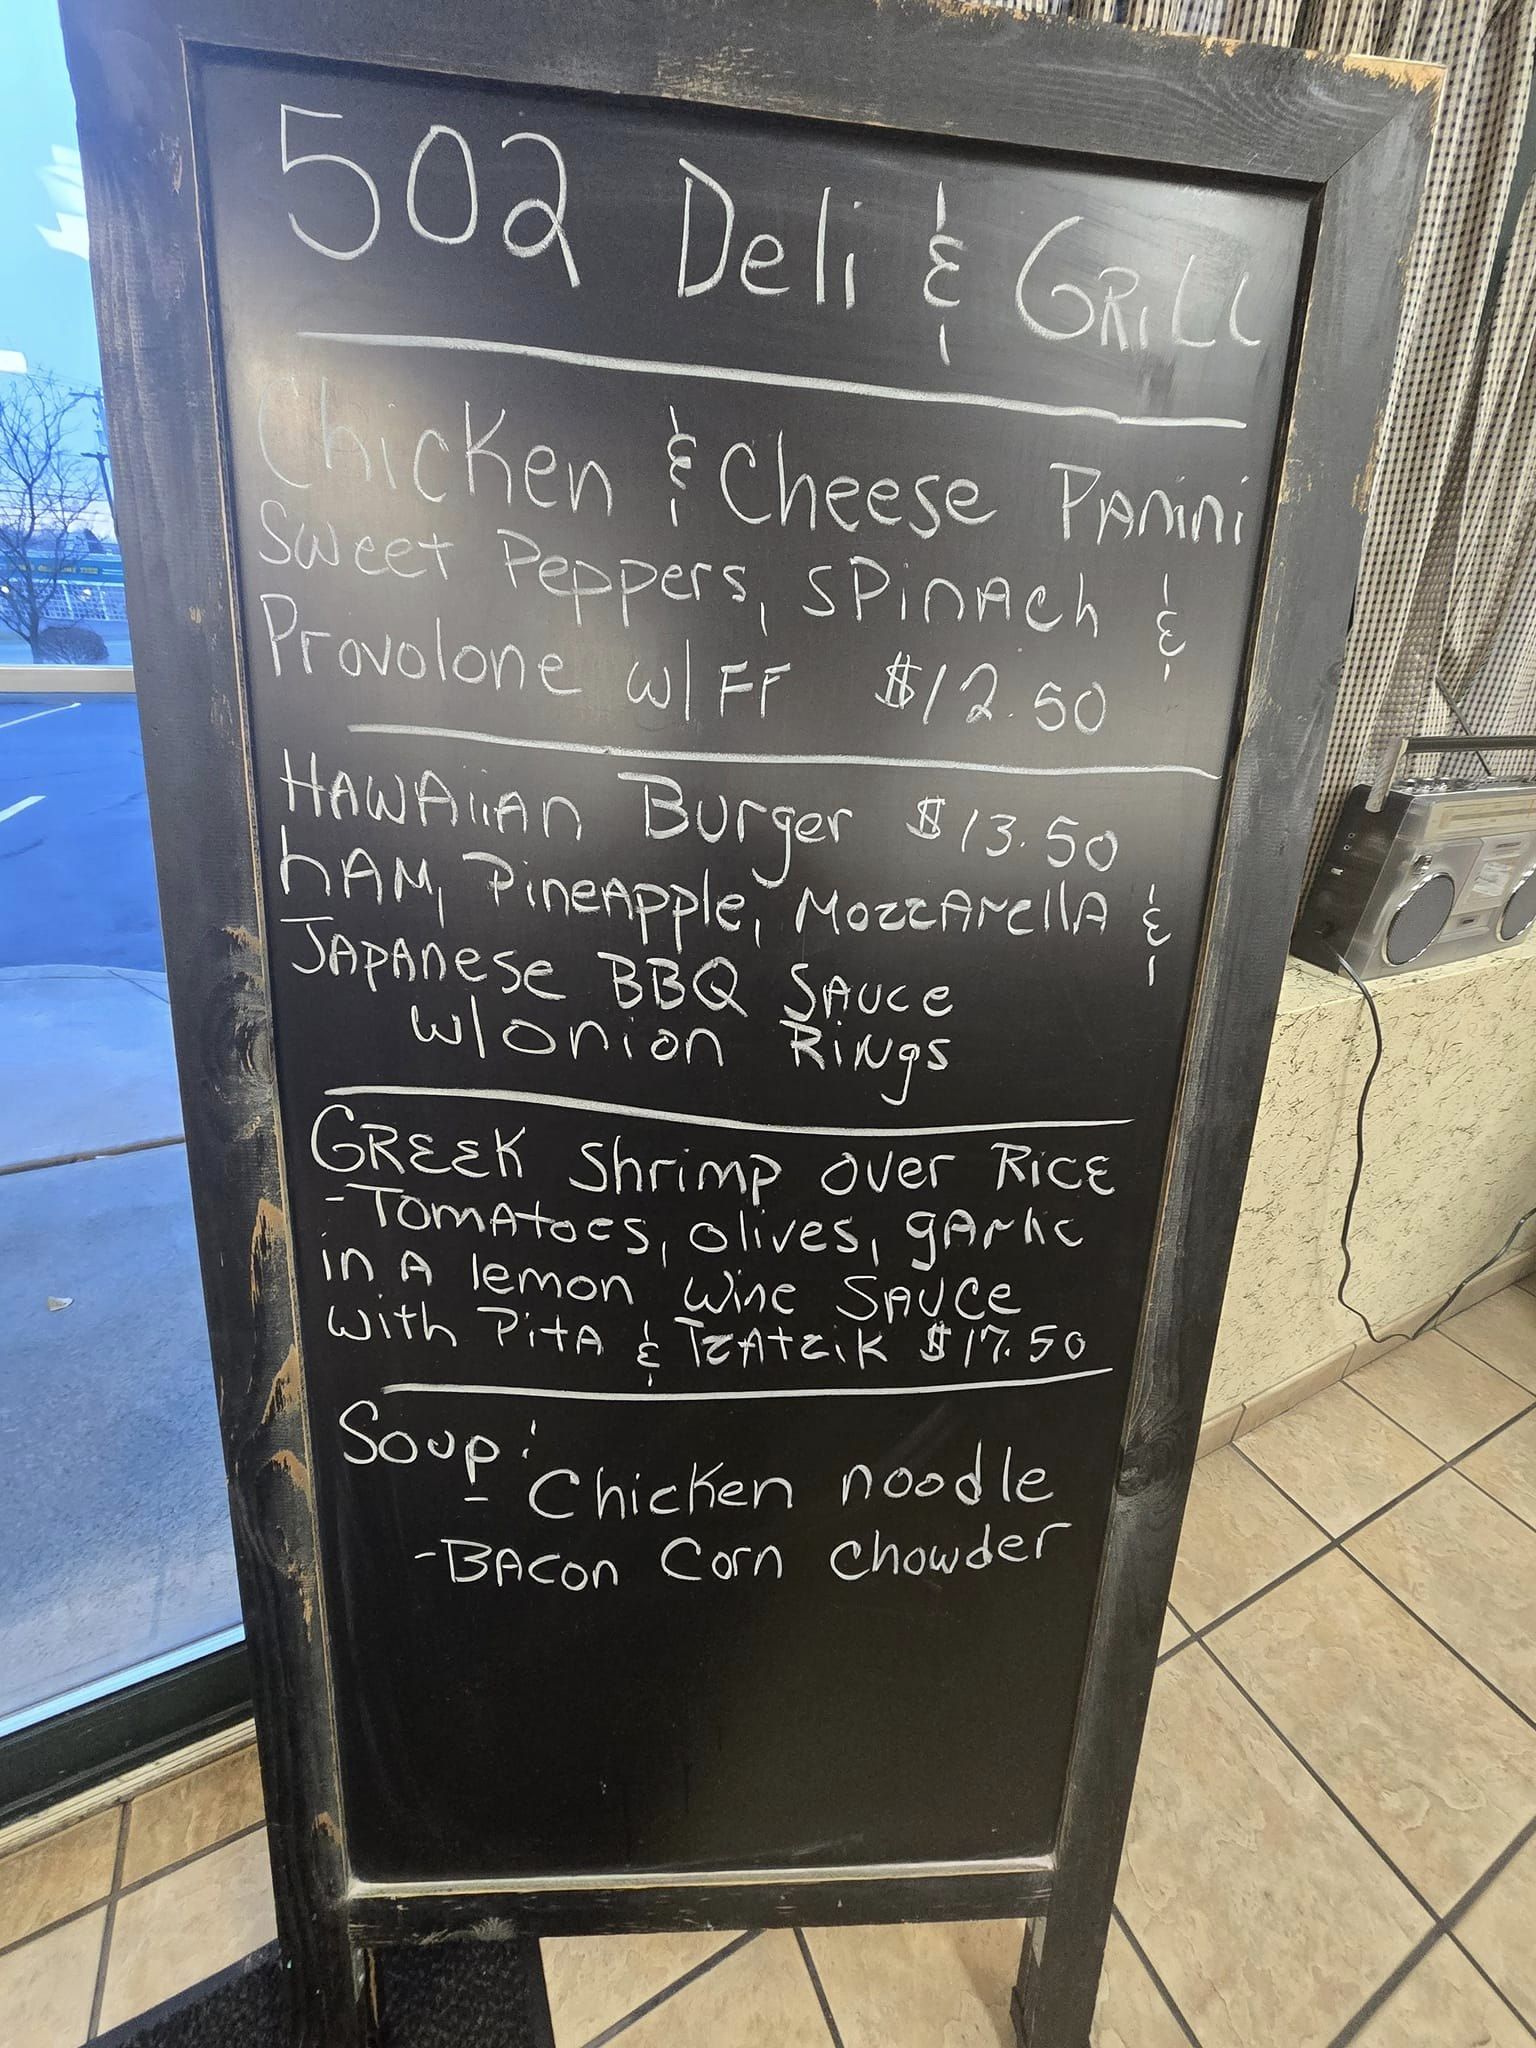 502 Deli & GRiLL
Chicken & Cheese PAnini
Sweet Peppers, SPinAch &
Provolone w/ FF $12.50
HAWAiiAn Burger $13.50
hAM, PineApple, MozzArellA &
JAPAnese BBQ SAuce
w/ onion Rings
GREEK Shrimp over RICE
- TomAtoes, olives, gArlic
in A lemon Wine SAUCe
with PitA & TzAtzik $17.50
Soup:
- Chicken noodle
- BAcon Corn chowder